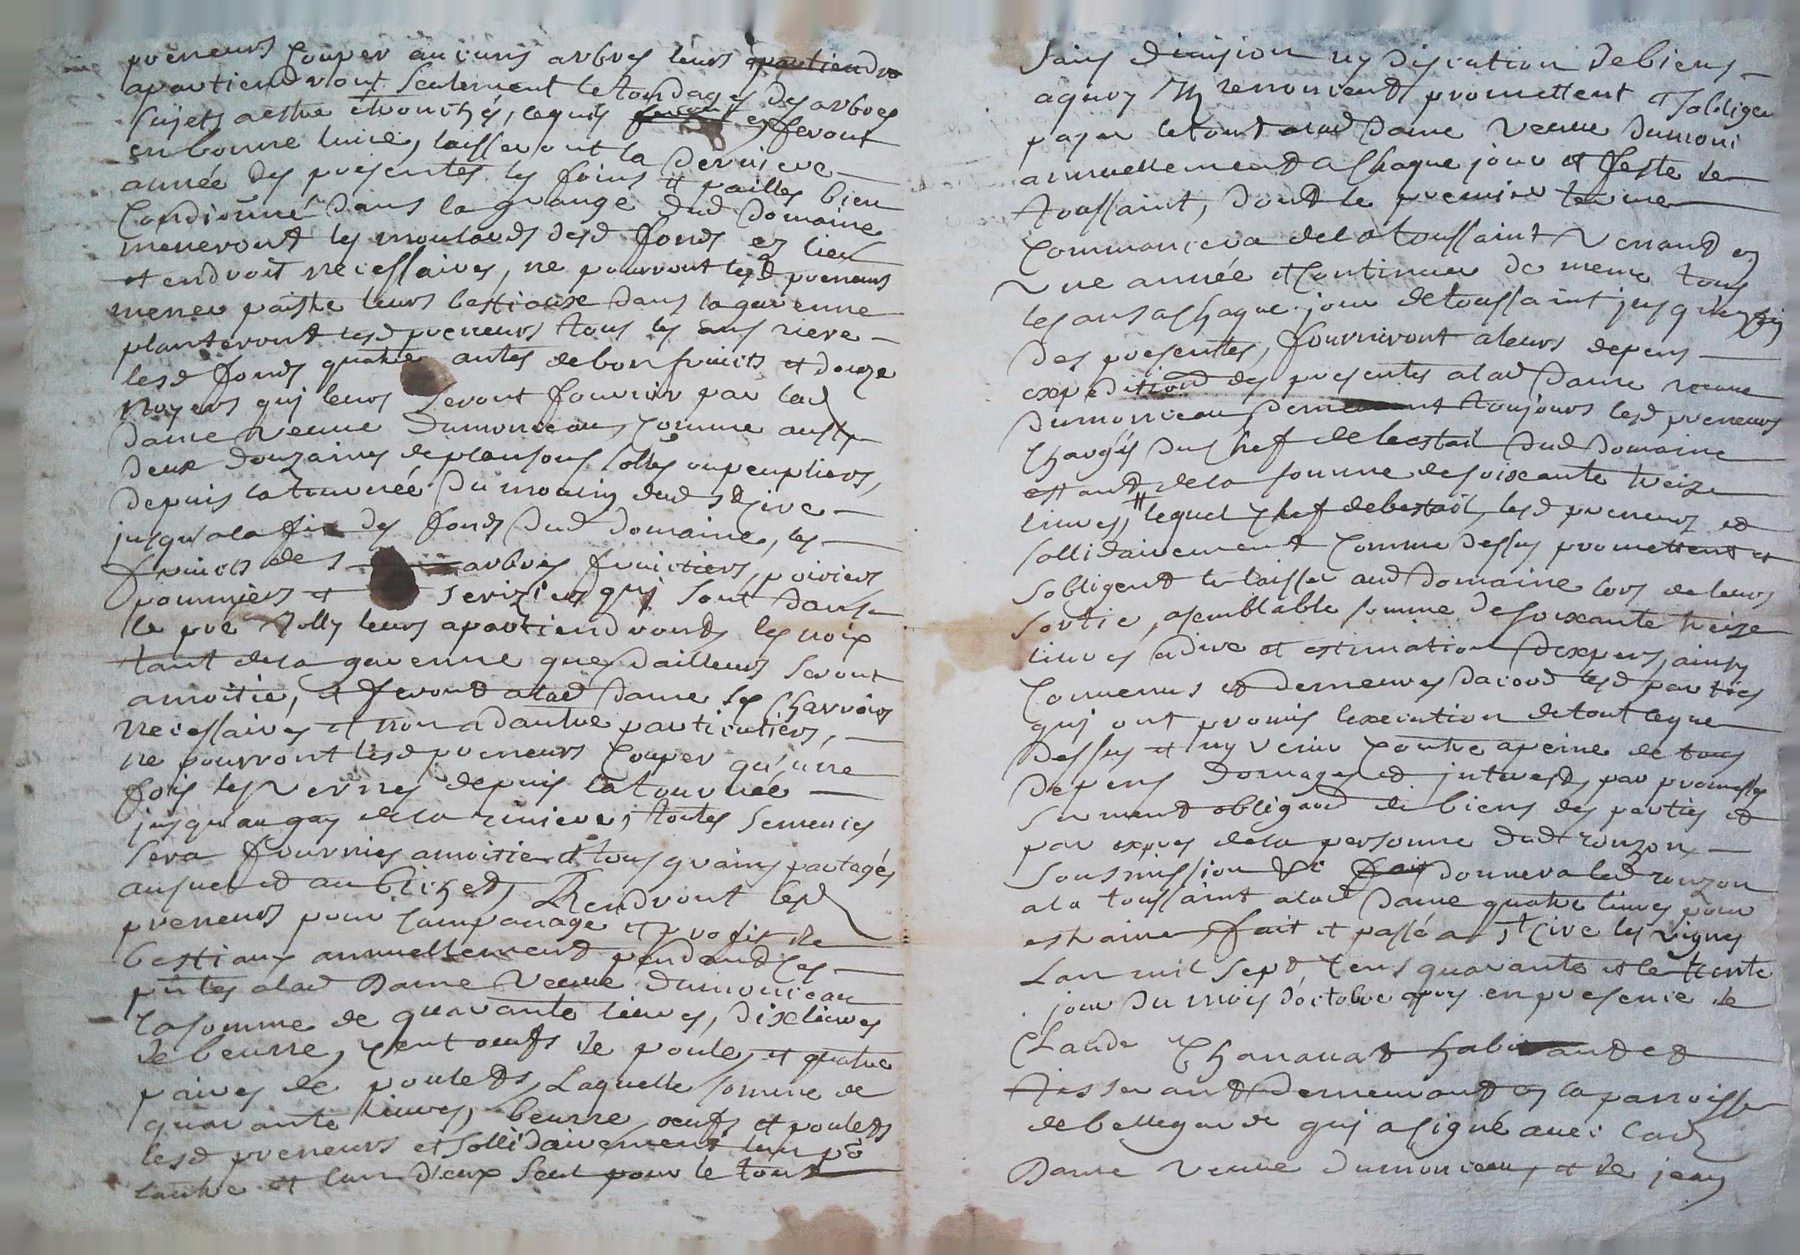 preneurs couper aucuns arbres leurs
apartiendront seulement le tondage des arbres
sujets a estre etronchés, lequel feront
en bonne lune, laisseront la derniere
année des presentes les foins et pailles bien
condionné dans la grange dud domaine
meneront les moulards desd fonds es lieux
et endroit necessaires, ne pourront lesd preneurs
mener paistre leurs bestiaux dans la garenne
planteront lesd preneurs tous les ans riere
lesd fonds quatre antes de bon fruicts et douze
noyers qui leurs seront fournir par lad
dame veuve Dumonceau, comme aussy
deux douzaines de plansons solles ou peupliers,
depuis la tournée du moulin dud st Cire
jusqua la fin des fonds dud domaine, les
fruicts des arbres fruictiers, poiriers
pommiers et serizies qui sont dans
le pré Jolly leurs apartiendronts les noix
tant de la garenne que dailleurs seront
a moitié, et feront a lad dame les charrois
necessaires et non a dautre particuliers,
ne pourront lesd preneurs couper qu'une
fois les vernes depuis la tournée
jusquau gas de la riviere, toutes semences
sera fournies a moitié et tous grains partagés
au suel et au blichet, Rendront lesd
preneurs pour lampanage et profit de
bestiaux annuellement pendand les
pntes a lad Dame veuve Dumonceau
la somme de quarante livres, dix livres
de beurre, cent oeufs de poule, et quatre
paires de pouletts, Laquelle somme de
quarante livres, beurre, oeufs et pouletts
lesd preneurs et sollidairement lun po
lautre et lun d'eux seul pour le tout
sans division ny discution de biens
a quoy ils renoncent promettent et sobligent
payer le tout a lad Dame veuve Dumonc
annuellement a chaque jour et feste de
toussaint, dont le premier terme
commancera de la toussaint venant en
une année et continuer de meme tous
les ans a chaque jour de toussaint jusqu'en fin
des presentes, fourniront a leurs depens
expedition des presentes a lad Dame veuve
Dumonceau Demeurant toujours lesd preneurs
chargés du chef de bestail dud domaine
estant de la somme de soixante treize
livres, lequel chef de bestail, lesd preneurs et
sollidairement comme dessus promettent et
sobligent de laisser aud domaine lors de leurs
sortie, a semblable somme de soixante treize
livres a dire et estimation dexpers, ainsy
convenus et demeures dacord lesd parties
qui ont promis lexecution de tout ce que
dessus et ny venir contre a peine de tous
depens domages et interests par promesses
serment obligaon de biens des parties et
par expres de la personne dud rouzon
sousmission &c donnera led rouzon
a la toussaint a lad Dame quatre livres pour
estraine, fait et passé a st Cire les vignes
Lan mil sept cens quarante et le trente
jour du mois d'octobre apres en presence de
Claude Chanavat habitant et
tisserant demeurant en la parroisse
de bellegarde qui a signé avec lad
Dame veuve Dumonceau, et de jean